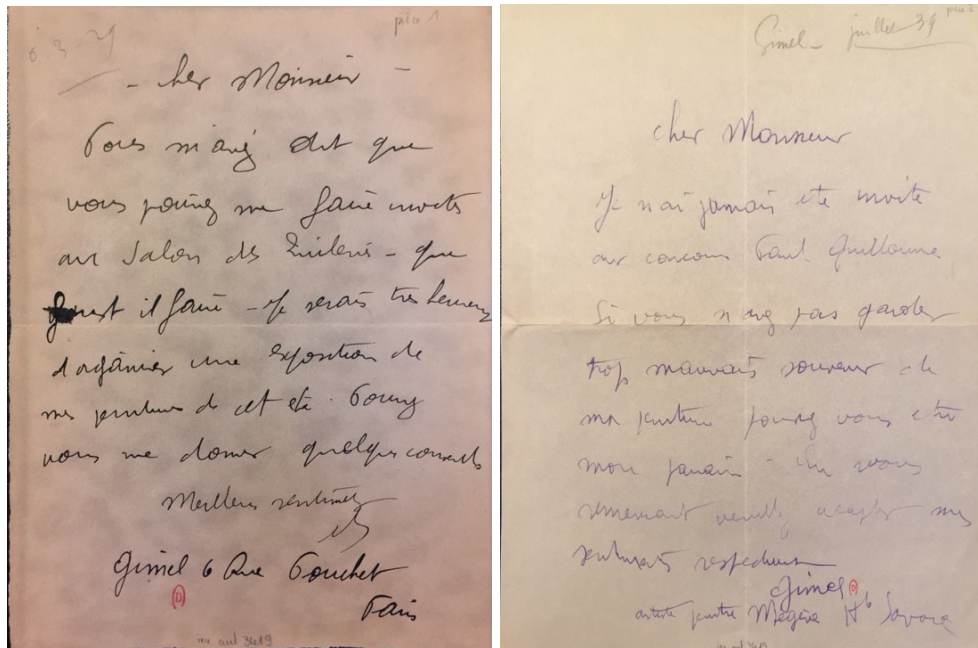 pièce 1
6.3.29
- Cher Monsieur -
Vous m'avez dit que
vous pouviez me faire inviter
au Salon des Tuileries - que
faut il faire - Je serais très heureux
d'organiser une exposition de
mes peintures de cet été. Pouvez
vous me donner quelques conseils
Meilleurs sentiments
Gimel 6 Rue Pouchet
Paris
D
Gimel juillet 39
Cher Monsieur
Je n'ai jamais été invité
au concours Paul Guillaume
Si vous n'avez pas gardé
trop mauvais souvenir de
ma peinture pouvez vous être
mon parrain - En vous
remerciant veuillez accepter mes
sentiments respectueux
Gimel
D
artiste peintre Megève Hte Savoie